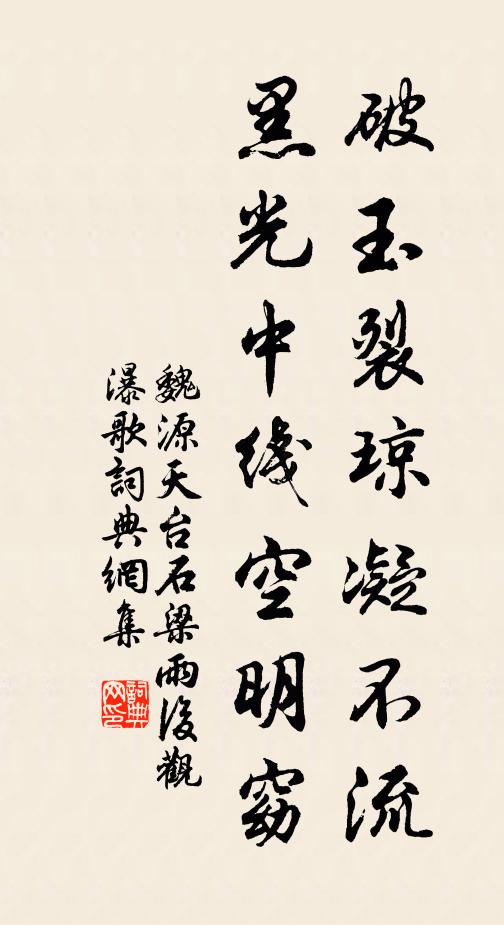 破玉裂琼凝不流
黑光中线空明窈
魏源天台石梁雨後觀
瀑歌詞典網集
詞典网印